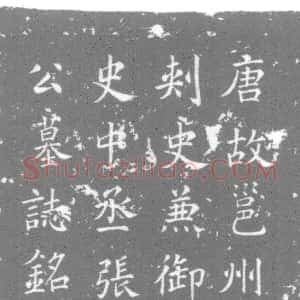 唐故邕州
刺史兼御
史中丞張
公墓誌銘
Shufazidian.com